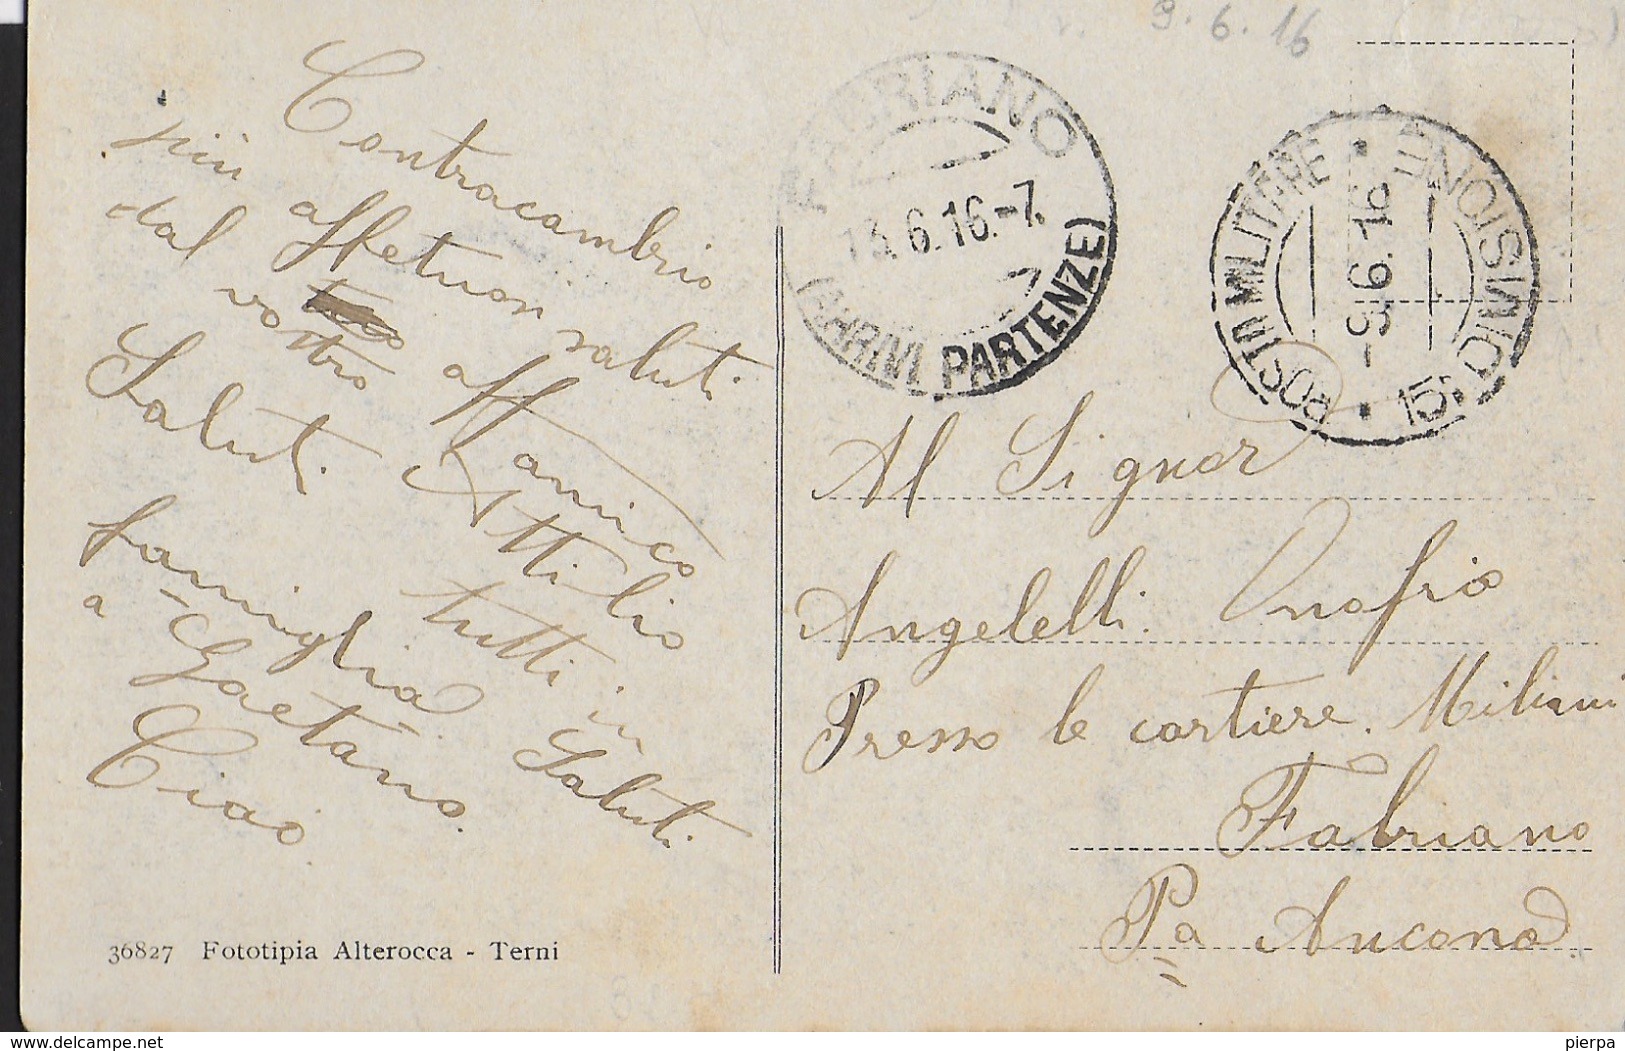 9.6.16
Contracambio
più affetuosi saluti
dal vostro aff amico
Saluti Attilio
tutti in
famiglia Saluti
a Gaetano.
Ciao
36827 Fototipia Alterocca - Terni
FABRIANO
13.6.16.-7.
(ARRIVI PARTENZE)
POSTA MILITARE
15ª DIVISIONE
9.6.16
Al Signor
Angelelli. Onofrio
Presso le cartiere. Miliani
Fabriano
Pa Ancona
www.delcampe.net
pierpa